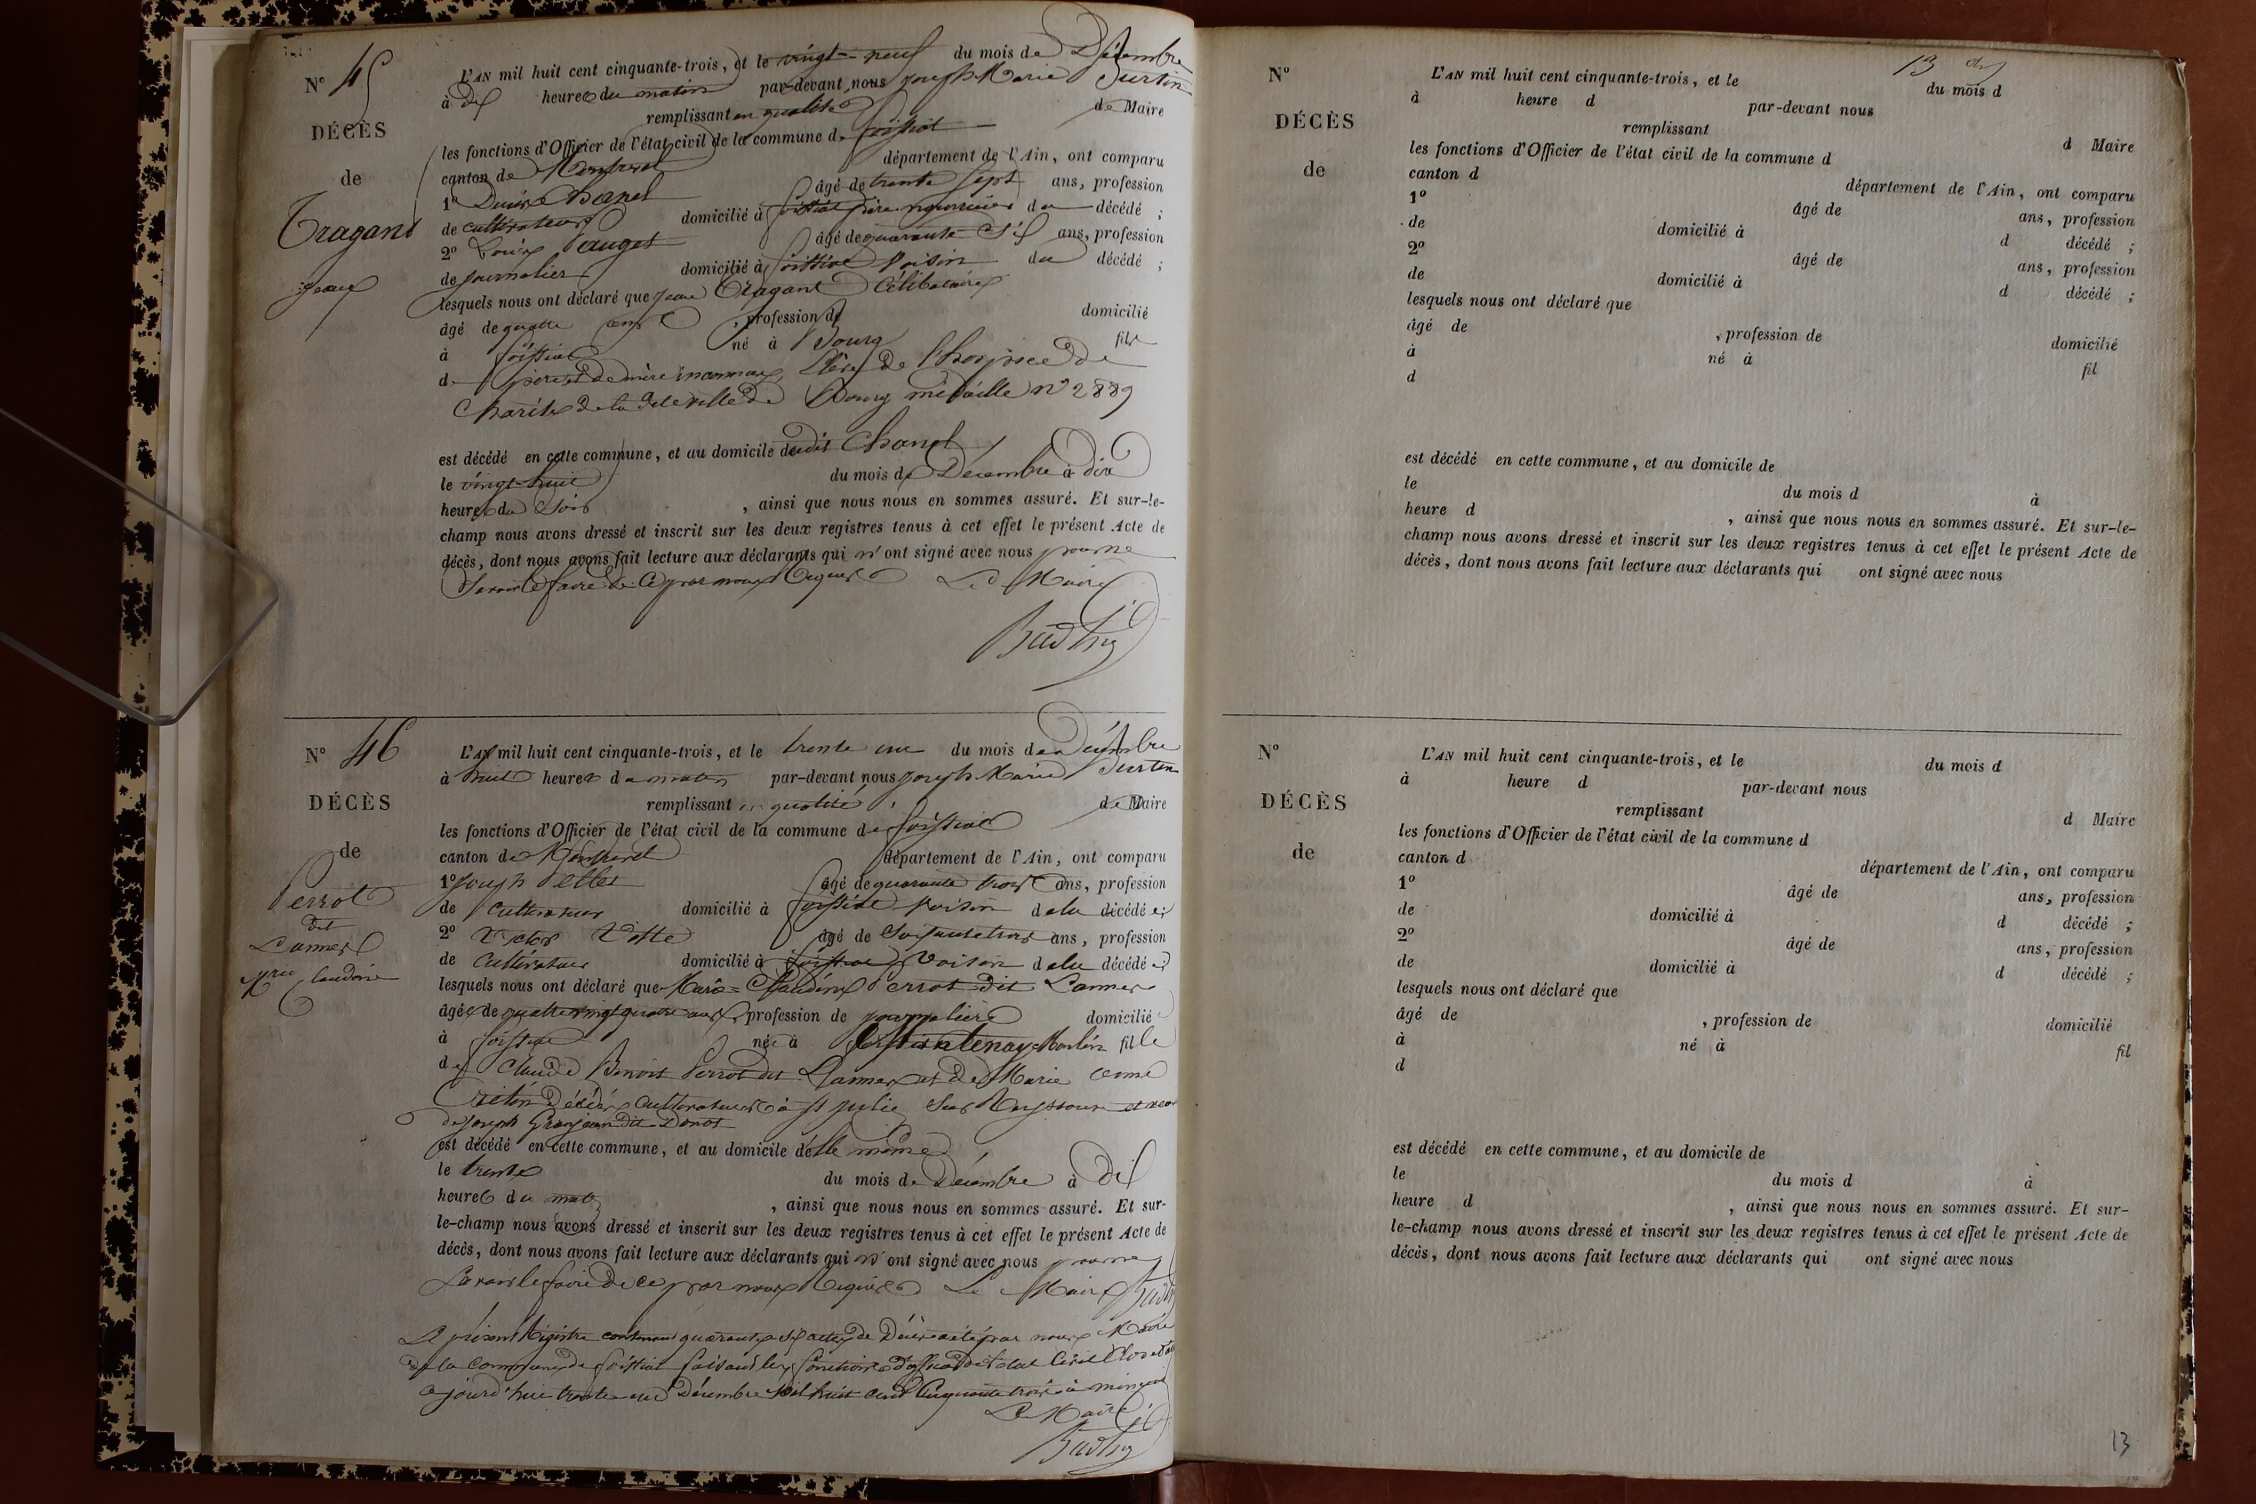 N° 45
DÉCÈS
de
Tragant
Jean
L'AN mil huit cent cinquante-trois, et le vingt-neuf du mois de Décembre
à dix heures du matin par-devant nous Joseph Marie Surtin
remplissant en qualité de Maire
les fonctions d'Officier de l'état civil de la commune de foissiat
canton de Montrevel département de l'Ain, ont comparu
1° Denis Chanel âgé de trente sept ans, profession
de cultivateur domicilié à foissiat père nourricier du décédé ;
2° Louis Pauget âgé de quarante six ans, profession
de journalier domicilié à foissiat voisin du décédé ;
lesquels nous ont déclaré que Jean Tragant Célibataire
âgé de quatre ans , profession de domicilié
à foissiat né à Bourg fils
de père et de mère inconnus, Elève de l'hospice de
Charité de la dite ville de Bourg médaille n° 2889
est décédé en cette commune, et au domicile dudit Chanel
le vingt-huit du mois de Décembre à dix
heures du soir , ainsi que nous nous en sommes assuré. Et sur-le-
champ nous avons dressé et inscrit sur les deux registres tenus à cet effet le présent Acte de
décès, dont nous avons fait lecture aux déclarants qui n'ont signé avec nous pour ne
savoir le faire de ce par nous requis Le Maire
N° 46
DÉCÈS
de
Perrot
dit
Lannes
Mrie Claudine
L'AN mil huit cent cinquante-trois, et le trente un du mois de Décembre
à huit heures du matin par-devant nous Joseph Marie Surtin
remplissant en qualité de Maire
les fonctions d'Officier de l'état civil de la commune de foissiat
canton de Montrevel département de l'Ain, ont comparu
1° Joseph âgé de quarante trois ans, profession
de cultivateur domicilié à foissiat voisin de la décédée ;
2° Victor âgé de soixante trois ans, profession
de cultivateur domicilié à foissiat voisin de la décédée ;
lesquels nous ont déclaré que Marie-Claudine Perrot dit Lannes
âgée de quatre vingt quatre ans, profession de journalière domicilié
à foissiat née à Mantenay Montlin fille
de Claude Benoit Perrot dit Lannes et de Marie
décédés cultivateurs à St Julie sur Reyssouze et
de Joseph Granjean dit Donot
est décédé en cette commune, et au domicile d'elle même
le trente du mois de Décembre à dix
heures du matin , ainsi que nous nous en sommes assuré. Et sur-
le-champ nous avons dressé et inscrit sur les deux registres tenus à cet effet le présent Acte de
décès, dont nous avons fait lecture aux déclarants qui n'ont signé avec nous pour ne
savoir le faire de ce par nous requis Le Maire
Le présent Registre contenant quarante six actes de Décès a été par nous Maire
de la commune de foissiat faisant les fonctions d'officier de l'état Civil Clos et
ajourd'hui trente un Décembre mil huit cent Cinquante trois à minuit
Le Maire
13
N°
DÉCÈS
de
L'AN mil huit cent cinquante-trois, et le du mois d
à heure d par-devant nous
remplissant d Maire
les fonctions d'Officier de l'état civil de la commune d
canton d département de l'Ain, ont comparu
1° âgé de ans, profession
de domicilié à d décédé ;
2° âgé de ans, profession
de domicilié à d décédé ;
lesquels nous ont déclaré que
âgé de , profession de domicilié
à né à fil
d
est décédé en cette commune, et au domicile de
le du mois d à
heure d , ainsi que nous nous en sommes assuré. Et sur-le-
champ nous avons dressé et inscrit sur les deux registres tenus à cet effet le présent Acte de
décès, dont nous avons fait lecture aux déclarants qui ont signé avec nous
N°
DÉCÈS
de
L'AN mil huit cent cinquante-trois, et le du mois d
à heure d par-devant nous
remplissant d Maire
les fonctions d'Officier de l'état civil de la commune d
canton d département de l'Ain, ont comparu
1° âgé de ans, profession
de domicilié à d décédé ;
2° âgé de ans, profession
de domicilié à d décédé ;
lesquels nous ont déclaré que
âgé de , profession de domicilié
à né à fil
d
est décédé en cette commune, et au domicile de
le du mois d à
heure d , ainsi que nous nous en sommes assuré. Et sur-
le-champ nous avons dressé et inscrit sur les deux registres tenus à cet effet le présent Acte de
décès, dont nous avons fait lecture aux déclarants qui ont signé avec nous
13